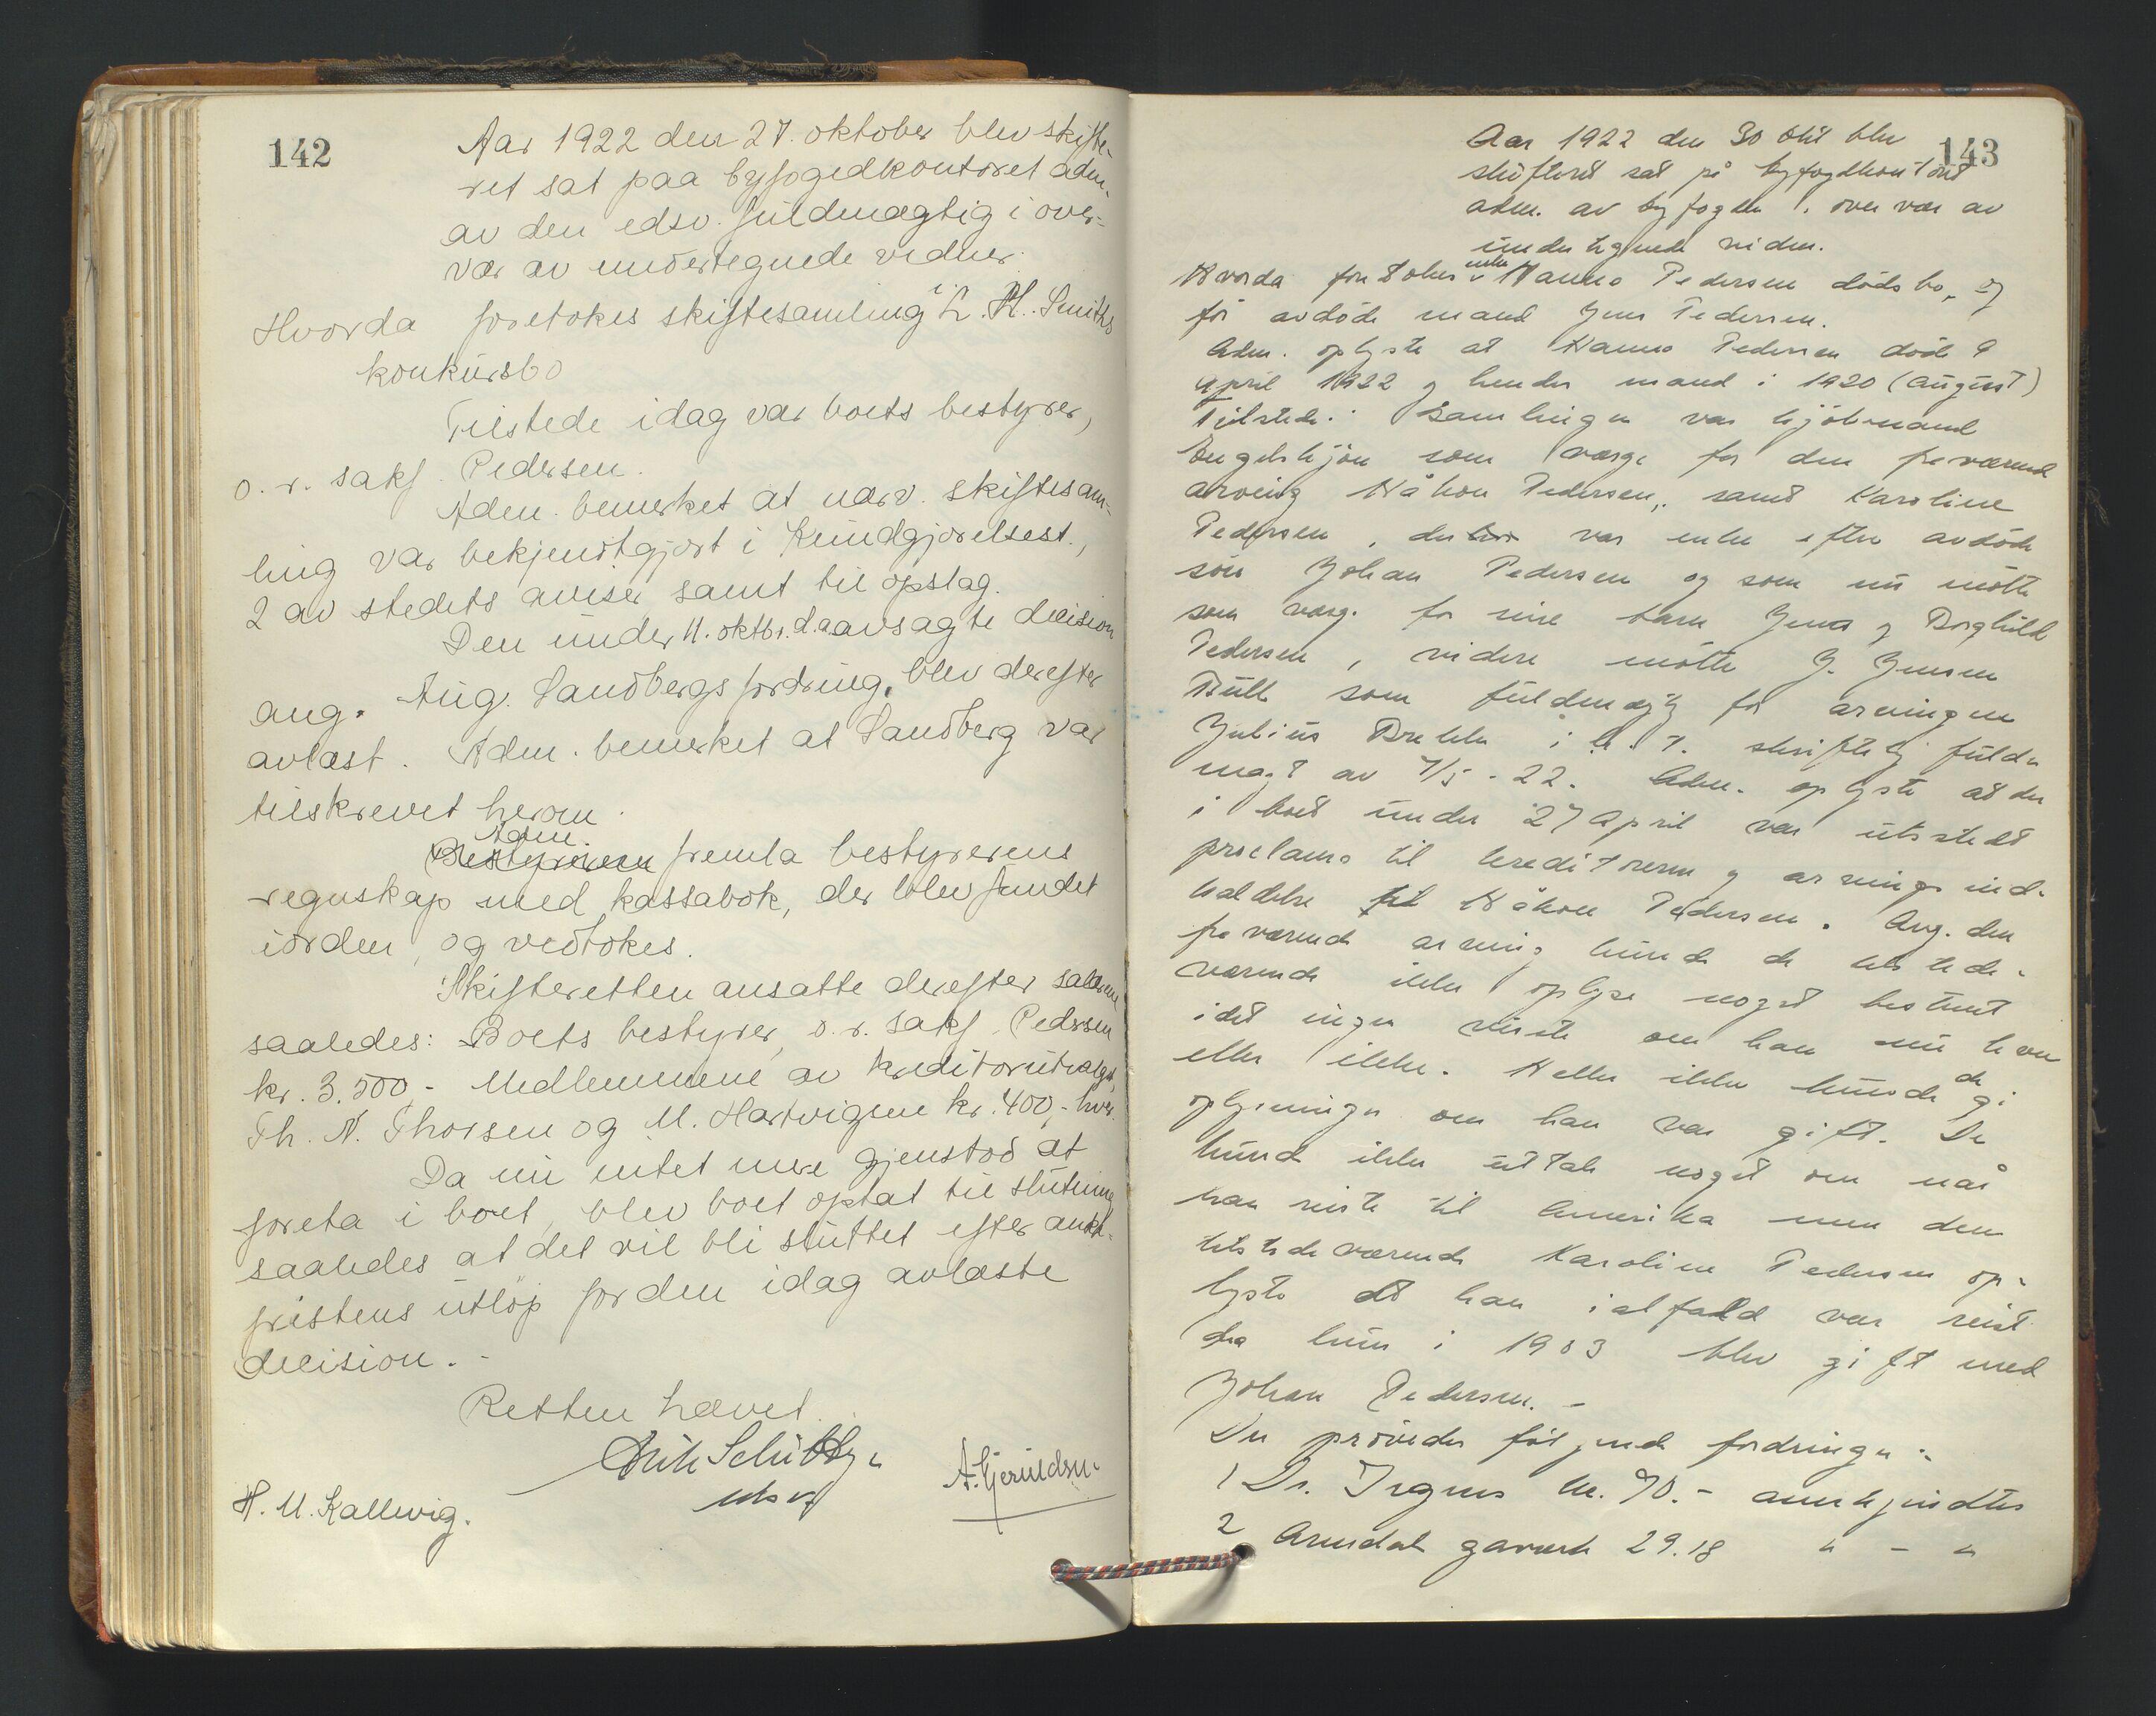 142
Aar 1922 den 27. oktober blev skifte-
ret sat paa byfogedkontoret adm.
av den edsv. fuldmægtig i over-
vær av undertegnede vidner.
Hvorda foretokes skiftesamling i L. H. Smiths
konkursbo
Tilstede idag var boets bestyrer,
o. r. sakf. Pedersen.
Adm. bemerket at nærv. skiftesam-
ling var bekjendtgjort i Kundgjørelsest.,
2 av stedets aviser samt til opslag.
Den under 11. oktbr. d.a. avsagte decision
ang. Aug. Sandbergs fordring, blev derefter
avlæst. Adm. bemerket at Sandberg var
tilskrevet herom.
Adm.
Bestyreren fremla bestyrerens
regnskap med kassabok, der blev fundet
iorden, og vedtokes.
Skifteretten ansatte derefter salærene
saaledes: Boets bestyrer, o. r. sakf. Pedersen
kr. 3.500,- Medlemmene av kreditorutvalget,
Th. N. Thorsen og M. Hartvigsen kr. 400,- hver.
Da nu intet mere gjenstod at
foreta i boet, blev boet optat til slutning
saaledes at det vil bli sluttet efter anke-
fristens utløp for den idag avlæste
decision. -
Retten hævet.
H. M. Kallevig.
143
Aar 1922 den 30 okt blev
skifteret sat på byfogdkontoret
adm. av byfogden i overvær av
undertegnede vidner.
Hvorda foretokes enke Hanna Pedersens dødsbo, og
før avdøde mand Jens Pedersen.
Adm. oplyste at Hanna Pedersen døde 9
april 1922 og hendes mand i 1920 (august)
Tilstede i samlingen var kjøbmand
Engelskjøn som værge for den fraværende
arving Håkon Pedersen, samt Karoline
Pedersen, der var enke efter avdøde
søn Johan Pedersen og som nu møtte
som værge for sine barn Jens og Borghild
Pedersen, videre møtte J. Jensen
Bull som fuldmægtig for arvingen
Julius Brekke i h. t. skriftlig fuld-
magt av 7/5 - 22. Adm. oplyste at der
i boet under 27 april var utstedt
proclama til kreditorerne og arvings ind-
kaldelse til Håkon Pedersen. Ang. den
fraværende arving kunde de tilstede-
værende ikke oplyse noget bestemt
idet ingen visste om han nu lever
eller ikke. Heller ikke kunde de gi
oplysninger om han var gift. De
kunde ikke uttale noget om når
han reiste til Amerika men den
tilstedeværende Karoline Pedersen op-
lyste at han ialfald var reist
da hun i 1903 blev gift med
Johan Pedersen. -
Der prøvedes følgende fordringer:
1 Dr. Irgens kr. 70.- anerkjendtes
2 Arendals gasverk 29.18 " - "